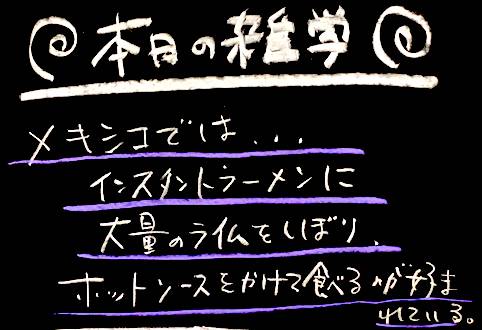 本日の雑学
メキシコでは...
インスタントラーメンに
大量のライムをしぼり、
ホットソースをかけて食べるのが好ま
れている。